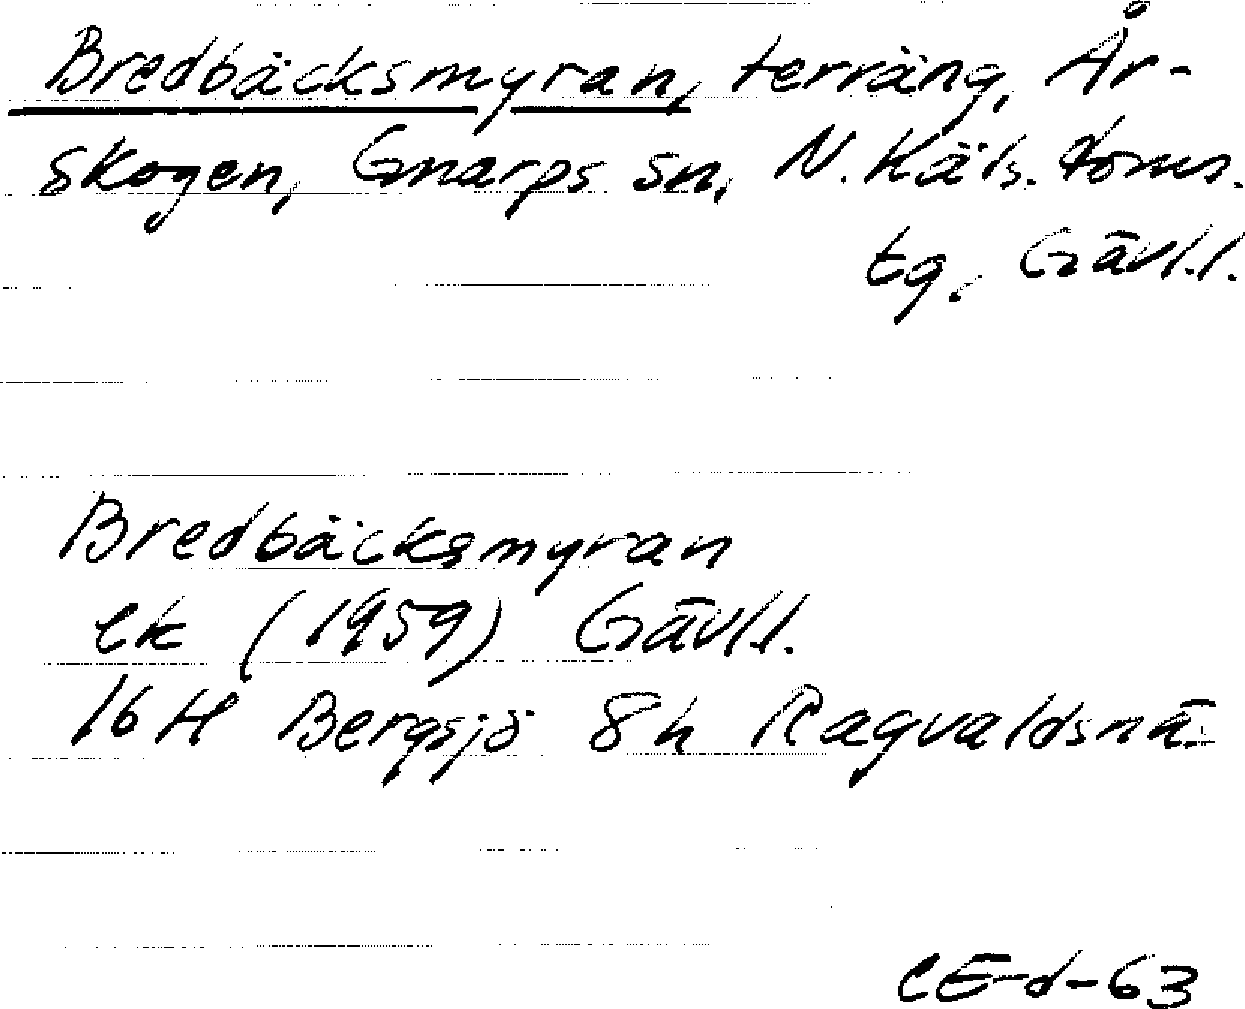 Bredbäcksmyran, terräng, År-
skogen, Gnarps sn, N. Häls. doms.
tg, Gävl.l.
Bredbäcksmyran
ek (1959) Gävl.l.
16 H Bergsjö 8h Ragvaldsnä.
CE-d-63